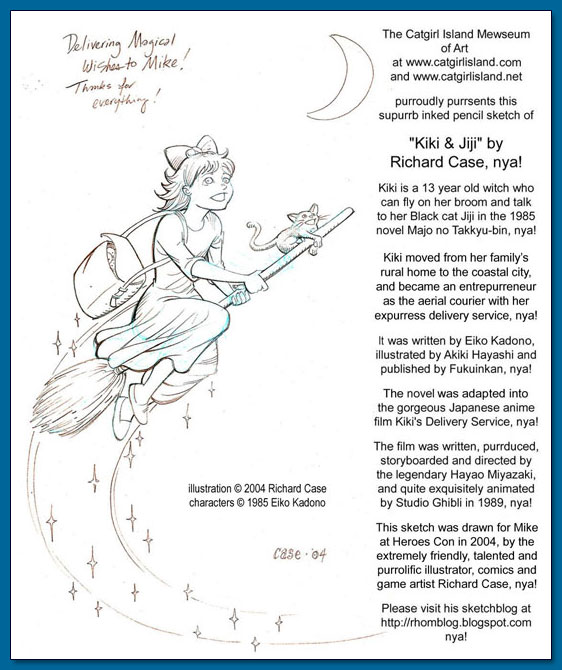 Delivering Magical
Wishes to Mike!
Thnks for
everything!
The Catgirl Island Mewseum
of Art
at www.catgirlisland.com
and www.catgirlisland.net
purroudly purrsents this
supurrb inked pencil sketch of
"Kiki & Jiji" by
Richard Case, nya!
Kiki is a 13 year old witch who
can fly on her broom and talk
to her Black cat Jiji in the 1985
novel Majo no Takkyu-bin, nya!
Kiki moved from her family's
rural home to the coastal city,
and became an entrepurreneur
as the aerial courier with her
expurress delivery service, nya!
It was written by Eiko Kadono,
illustrated by Akiki Hayashi and
published by Fukuinkan, nya!
The novel was adapted into
the gorgeous Japanese anime
film Kiki's Delivery Service, nya!
The film was written, purrduced,
storyboarded and directed by
the legendary Hayao Miyazaki,
and quite exquisitely animated
by Studio Ghibli in 1989, nya!
This sketch was drawn for Mike
at Heroes Con in 2004, by the
extremely friendly, talented and
purrolific illustrator, comics and
game artist Richard Case, nya!
Please visit his sketchblog at
http://rhomblog.blogspot.com
nya!
illustration © 2004 Richard Case
characters © 1985 Eiko Kadono
Case · '04